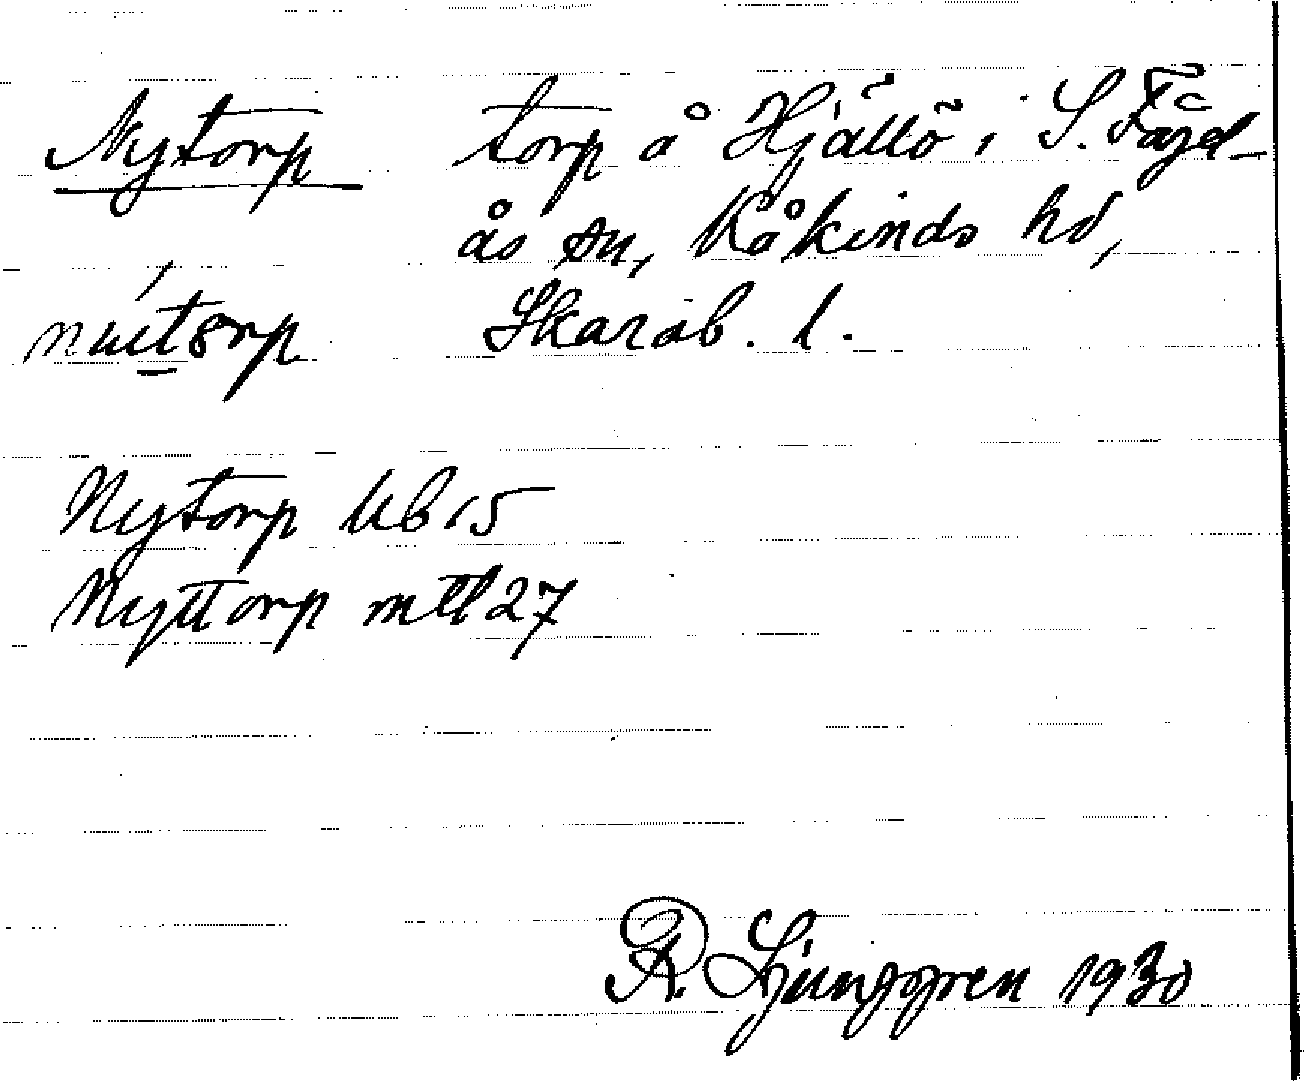 Nytorp torp å Hjällö, S. Fågel-
ås sn, Kåkinds hd,
Skarab. l.
Nytorp Ub 15
Nyttorp mtl 27
R Ljunggren 1930